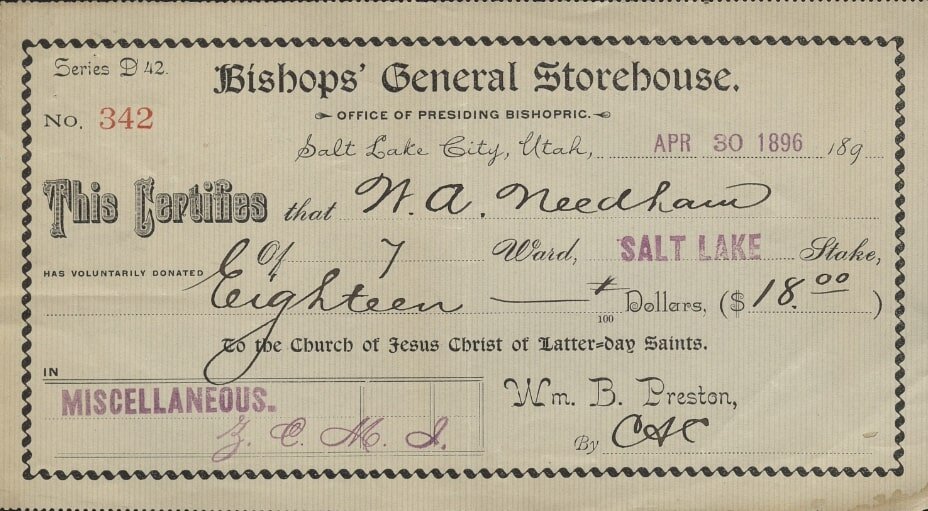 Series D 42.
Bishops' General Storehouse.
No. 342
OFFICE OF PRESIDING BISHOPRIC.
Salt Lake City, Utah, APR 30 1896 189
This Certifies that W. A. Needham
Of 7 Ward, SALT LAKE Stake,
HAS VOLUNTARILY DONATED
Eighteen Dollars, ($18.00)
100
To the Church of Jesus Christ of Latter-day Saints.
IN
MISCELLANEOUS.
Z. C. M. I.
Wm. B. Preston,
By